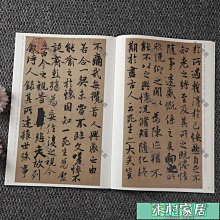 所遇暫得於己怏然自足不
知老之將至及其所之既惓情
隨事遷感慨係之矣向之所
欣俛仰之間以為陳迹猶不
能不以之興懷況脩短隨化終
期於盡古人云死生亦大矣豈
不痛哉每攬昔人興感之由
若合一契未嘗不臨文嗟悼不
能喻之於懷固知一死生為虛
誕齊彭殤為妄作後之視今
亦由今之視昔悲夫故列
敘時人錄其所述雖世殊事
村家居